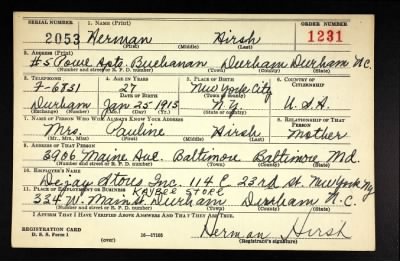 SERIAL NUMBER 1. NAME (Print) ORDER NUMBER
2053 Herman Hirsh 1231
(First) (Middle) (Last)
2. ADDRESS (Print)
#5 Powe Apts. Buchanan Durham Durham N.C.
(Number and street or R. F. D. number) (Town) (County) (State)
3. TELEPHONE 4. AGE IN YEARS 5. PLACE OF BIRTH 6. COUNTRY OF CITIZENSHIP
F-6851 27 New York City
DATE OF BIRTH (Town or county)
Durham Jan 25 1913 N.Y. U.S.A.
(Exchange) (Number) (Mo.) (Day) (Yr.) (State or country)
7. NAME OF PERSON WHO WILL ALWAYS KNOW YOUR ADDRESS 8. RELATIONSHIP OF THAT PERSON
Mrs. Pauline Hirsh Mother
(Mr., Mrs., Miss) (First) (Middle) (Last)
9. ADDRESS OF THAT PERSON
3906 Maine Ave. Baltimore Baltimore Md.
(Number and street or R. F. D. number) (Town) (County) (State)
10. EMPLOYER'S NAME
Stores Inc. 114 E. 23rd St. New York Ny
11. PLACE OF EMPLOYMENT OR BUSINESS KAYBEE STORE
334 W. Main St. Durham Durham N.C.
(Number and street or R. F. D. number) (Town) (County) (State)
I AFFIRM THAT I HAVE VERIFIED ABOVE ANSWERS AND THAT THEY ARE TRUE.
REGISTRATION CARD
D. S. S. Form 1 16-17105 Herman Hirsh
(over) (Registrant's signature)